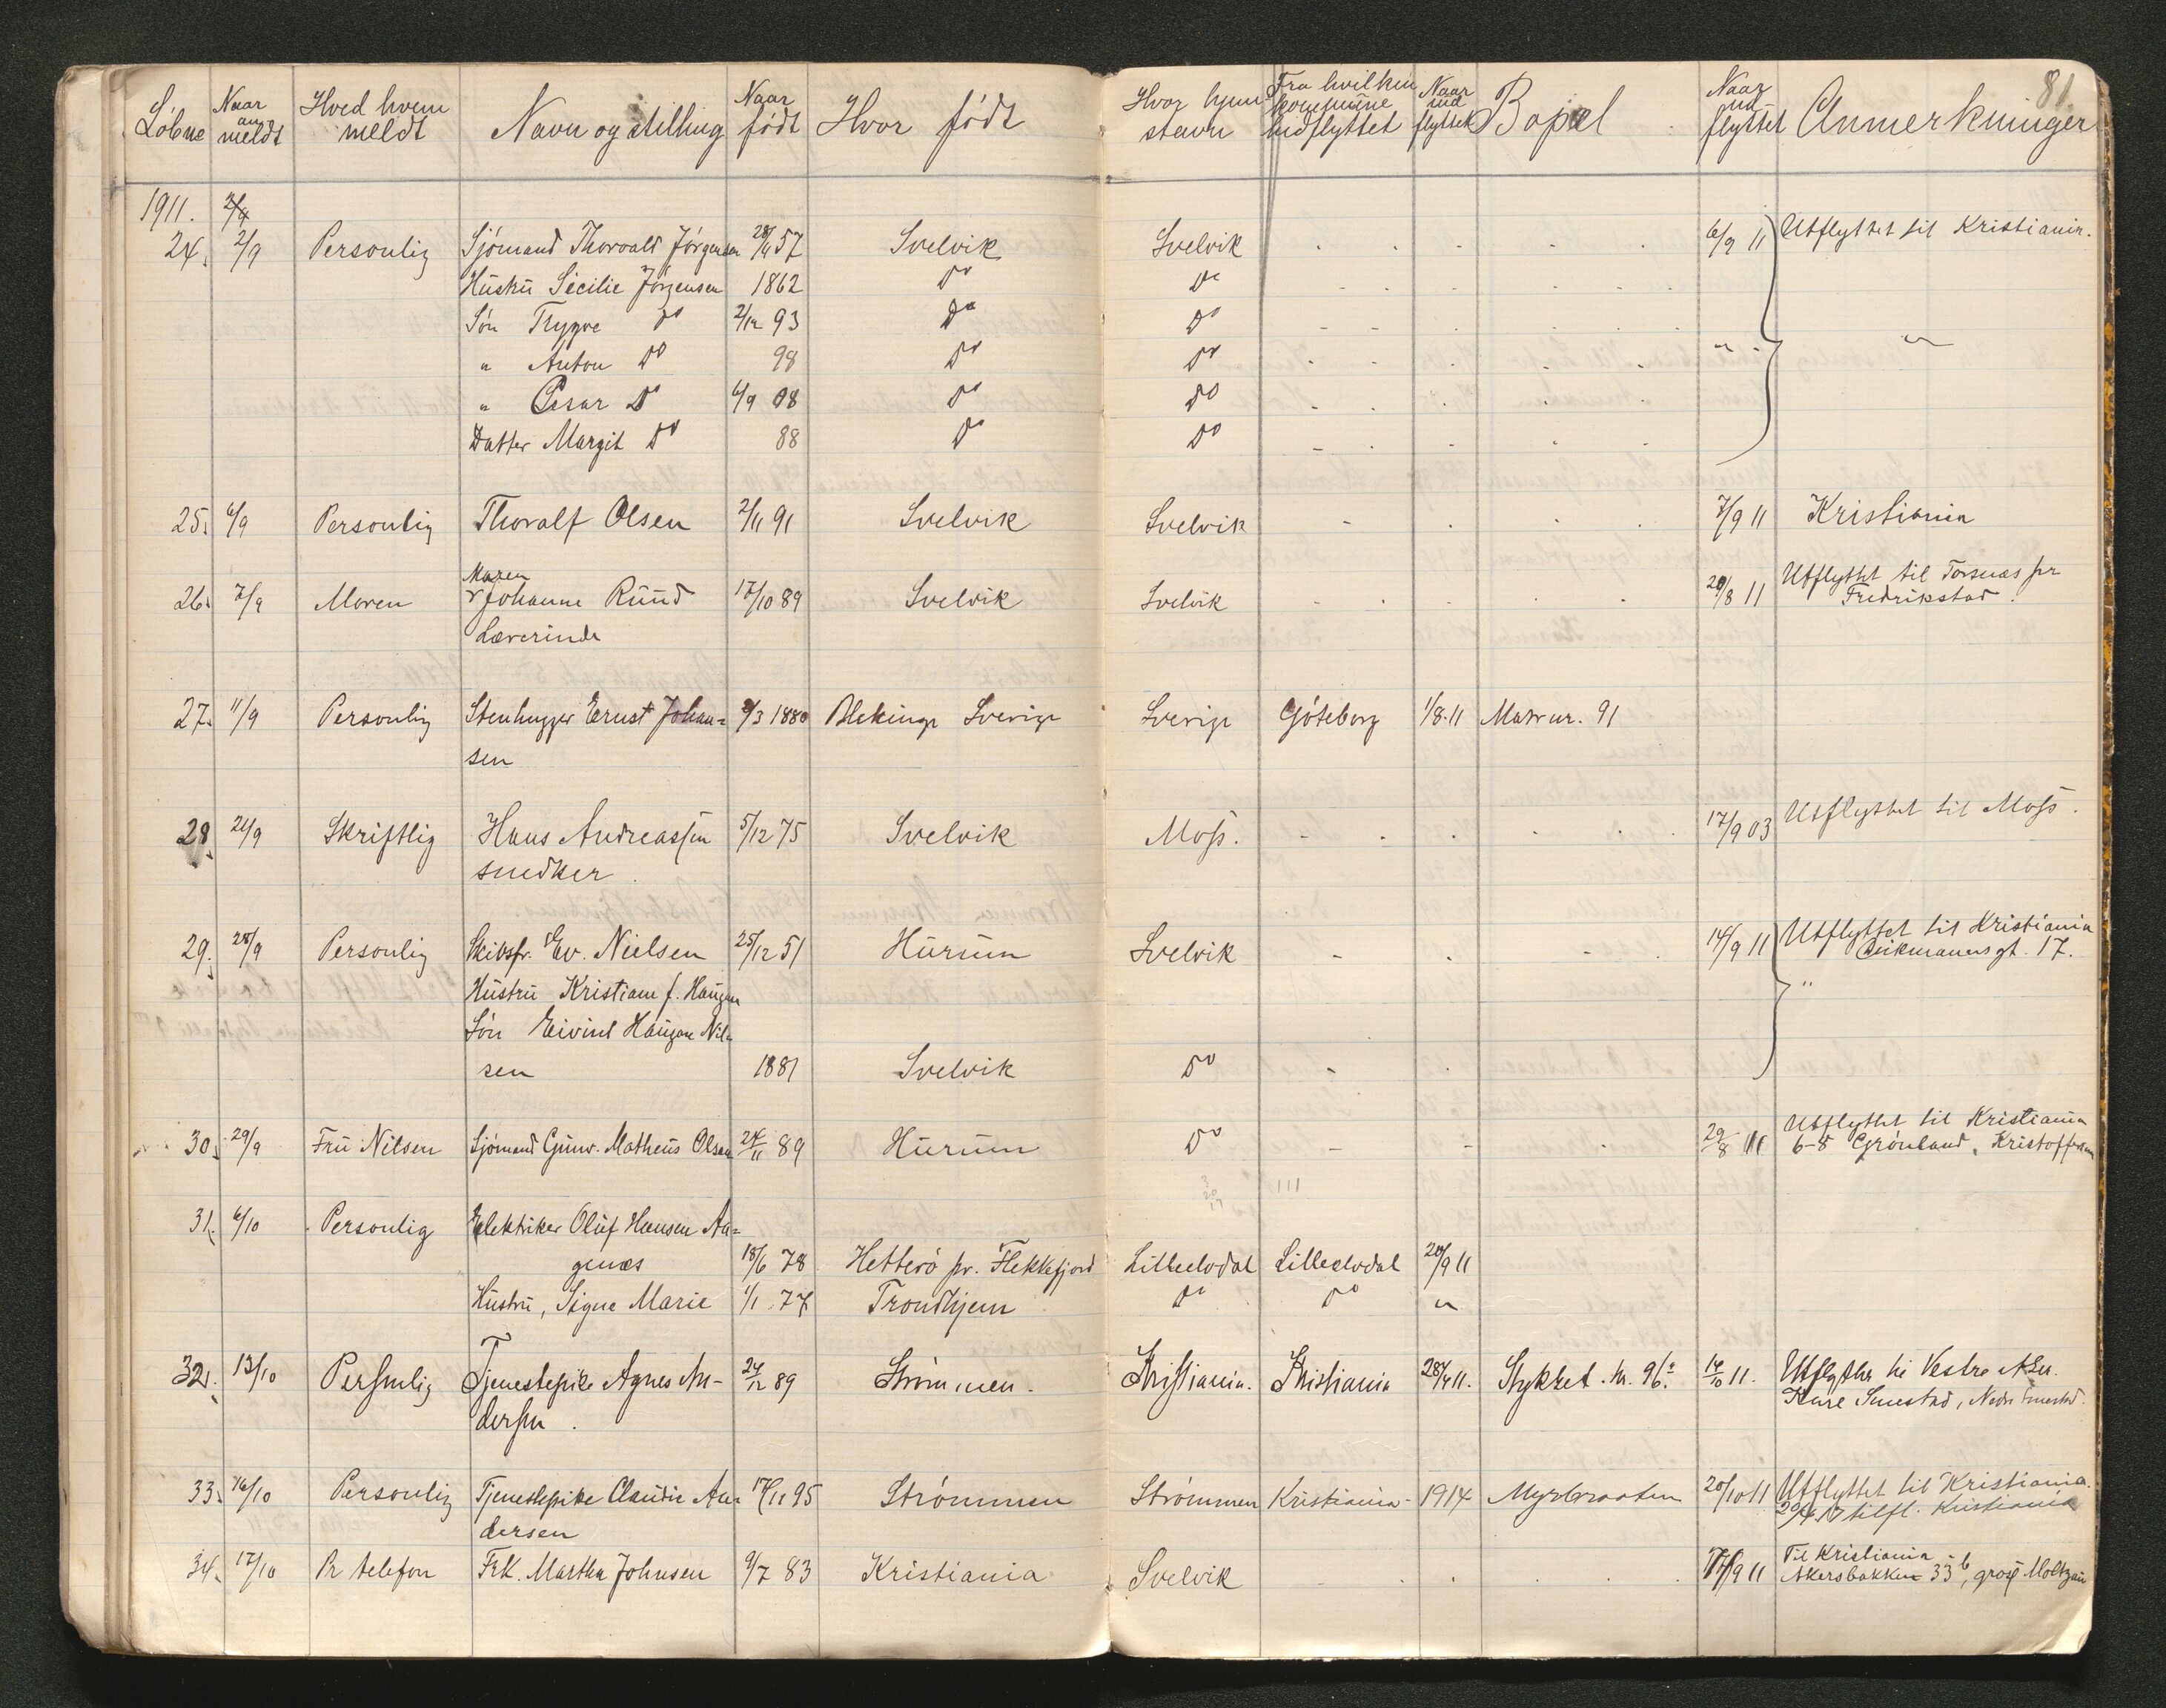 81.
Løbne Naar anmeldt Hved hvem meldt Navn og stilling Naar født Hvor født Hvor hjemstavn Fra hvilken kommune indflyttet Naar ind flyttet Bopæl Naar ud flyttet Anmerkninger
1911. 2/9
24. 2/9 Personlig Sjømand Thorvald Jørgensen 28/4 57 Svelvik Svelvik 6/9 11 Utflyttet til Kristiania.
Hustru Secilie Jørgensen 1862 Do Do
Søn Trygve Do 2/12 93 Do Do
" Anton Do 98 Do Do " "
" Do 6/9 08 Do Do
Datter Margit Do 88 Do Do
25. 6/9 Personlig Thoralf Olsen 2/11 91 Svelvik Svelvik 7/9 11 Kristiania
Maren
26. 7/9 Moren Johanne Ruud 17/10 89 Svelvik Svelvik 20/8 11 Utflyttet til Torsnæs pr
Lærerinde Fredrikstad.
27. 11/9 Personlig Stenhugger Ernst Johan= 9/3 1880 Blekinge Sverige Sverige Göteborg 1/8.11 Matr nr. 91
sen
28. 21/9 Skriftlig Hans Andreassen 5/12 75 Svelvik Moss. 17/9 03 Utflyttet til Moss.
snedker.
29. 28/9 Personlig Skibsfr. Ev. Nielsen 25/12 51 Hurum Svelvik 14/9 11 Utflyttet til Kristiania
Deikmannsgt. 17.
Hustru Kristiane f. Haugan "
Søn Eivind Haugan Niel=
sen 1881 Svelvik Do
30. 29/9 Fru Nilsen Sjømand Gunv. Matheus Olsen 24/11 89 Hurum Do 29/8 11 Utflyttet til Kristiania
6-8 Grønland, Kristoffersen
31. 6/10 Personlig Elektriker Oluf Hansen Aa=
genæs 18/6 78 Hetterö pr. Flekkefjord Lilleelvdal Lilleelvdal 20/9 11
Hustru, Signe Marie 1/1 77 Trondhjem Do Do "
32. 13/10 Personlig Tjenestepike Agnes An- 24/12 89 Strømmen. Kristiania. Kristiania 28/4 11. Stykket. m. 96. 14/10 11. Utflytter til Vestre Aker.
dersen. Smestad, Nedre Smestad.
33. 16/10 Personlig Tjenestepike Claudie An= 17/11 95 Strømmen Strømmen Kristiania 1914 Myrbraaten 20/10 11 Utflyttet til Kristiania.
dersen 20/4 17 tilfl. Kristiania
34. 17/10 Pr telefon Frk. Martha Johnsen 9/7 83 Kristiania Svelvik 17/9 11 Til Kristiania
Akersbakken 33 b, gros. Moltzau